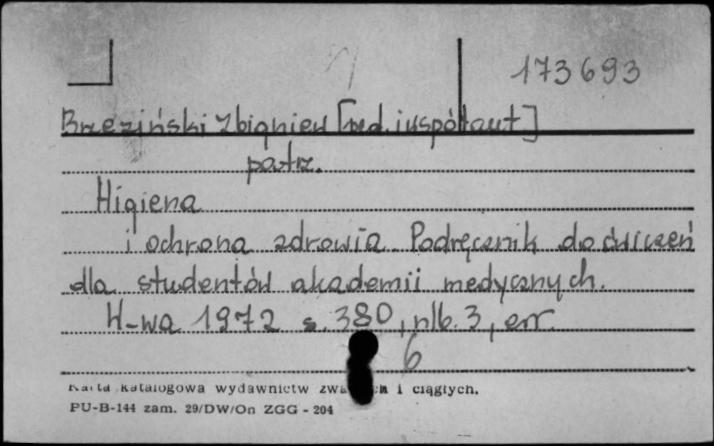 173693
Brzeziński Zbigniew [red. i współaut.]
patrz.
Higiena
i ochrona zdrowia. Podręcznik do ćwiczeń
dla studentów akademii medycznych.
W-wa 1972 s. 380, nlb. 3, err.
6
Karta katalogowa wydawnictw i ciągłych.
PU-B-144 zam. 29/DW/On ZGG - 204